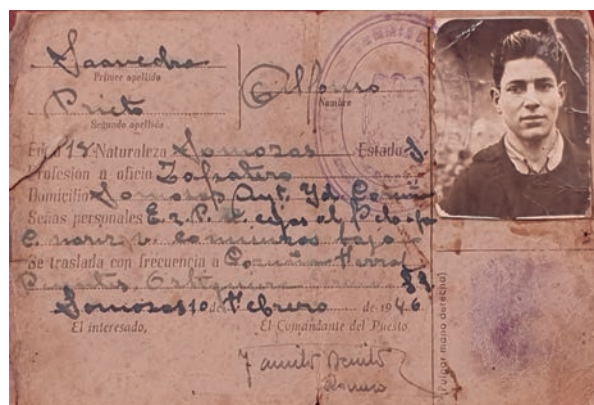 Saavedra
Primer apellido
Alfonso
Nombre
Prieto
Segundo apellido
Edad 18 Naturaleza Somozas Estado S.
Profesión a oficio Zapatero
Domicilio Somozas Ayt. Yd. Coruña
Señas personales E. r. P. cejas al Pelo ojos
C. nariz r. Comisuras bajas
Se traslada con frecuencia a Coruña Ferrol
Puentes Ortigueira
Somozas 10 de Febrero de 1946
El interesado,
El Comandante del Puesto
(Pulgar mano derecha)